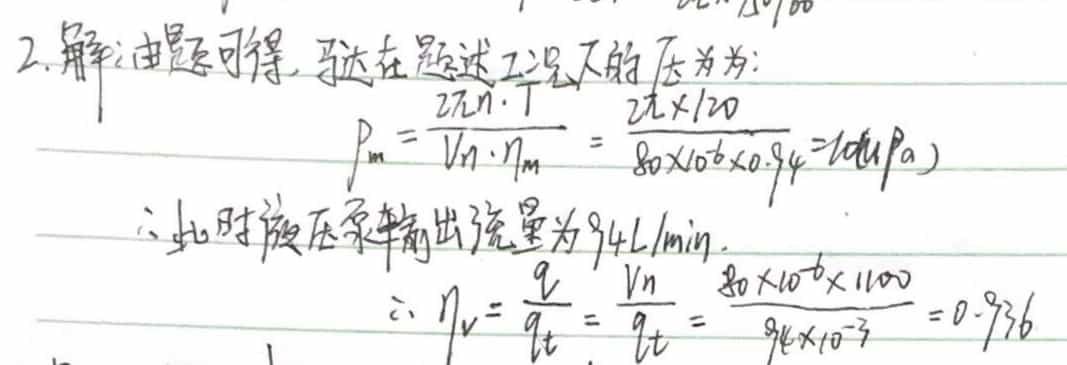 2. 解:由题可得,马达在题述工况下的压力为:
Pm = 2πn·T / Vn·ηm = 2π×120 / 80×10⁻⁶×0.94 = 10(MPa)
∴此时液压泵输出流量为94L/min.
∴ ηv = q / qt = Vn / qt = 80×10⁻⁶×1100 / 94×10⁻³ = 0.936